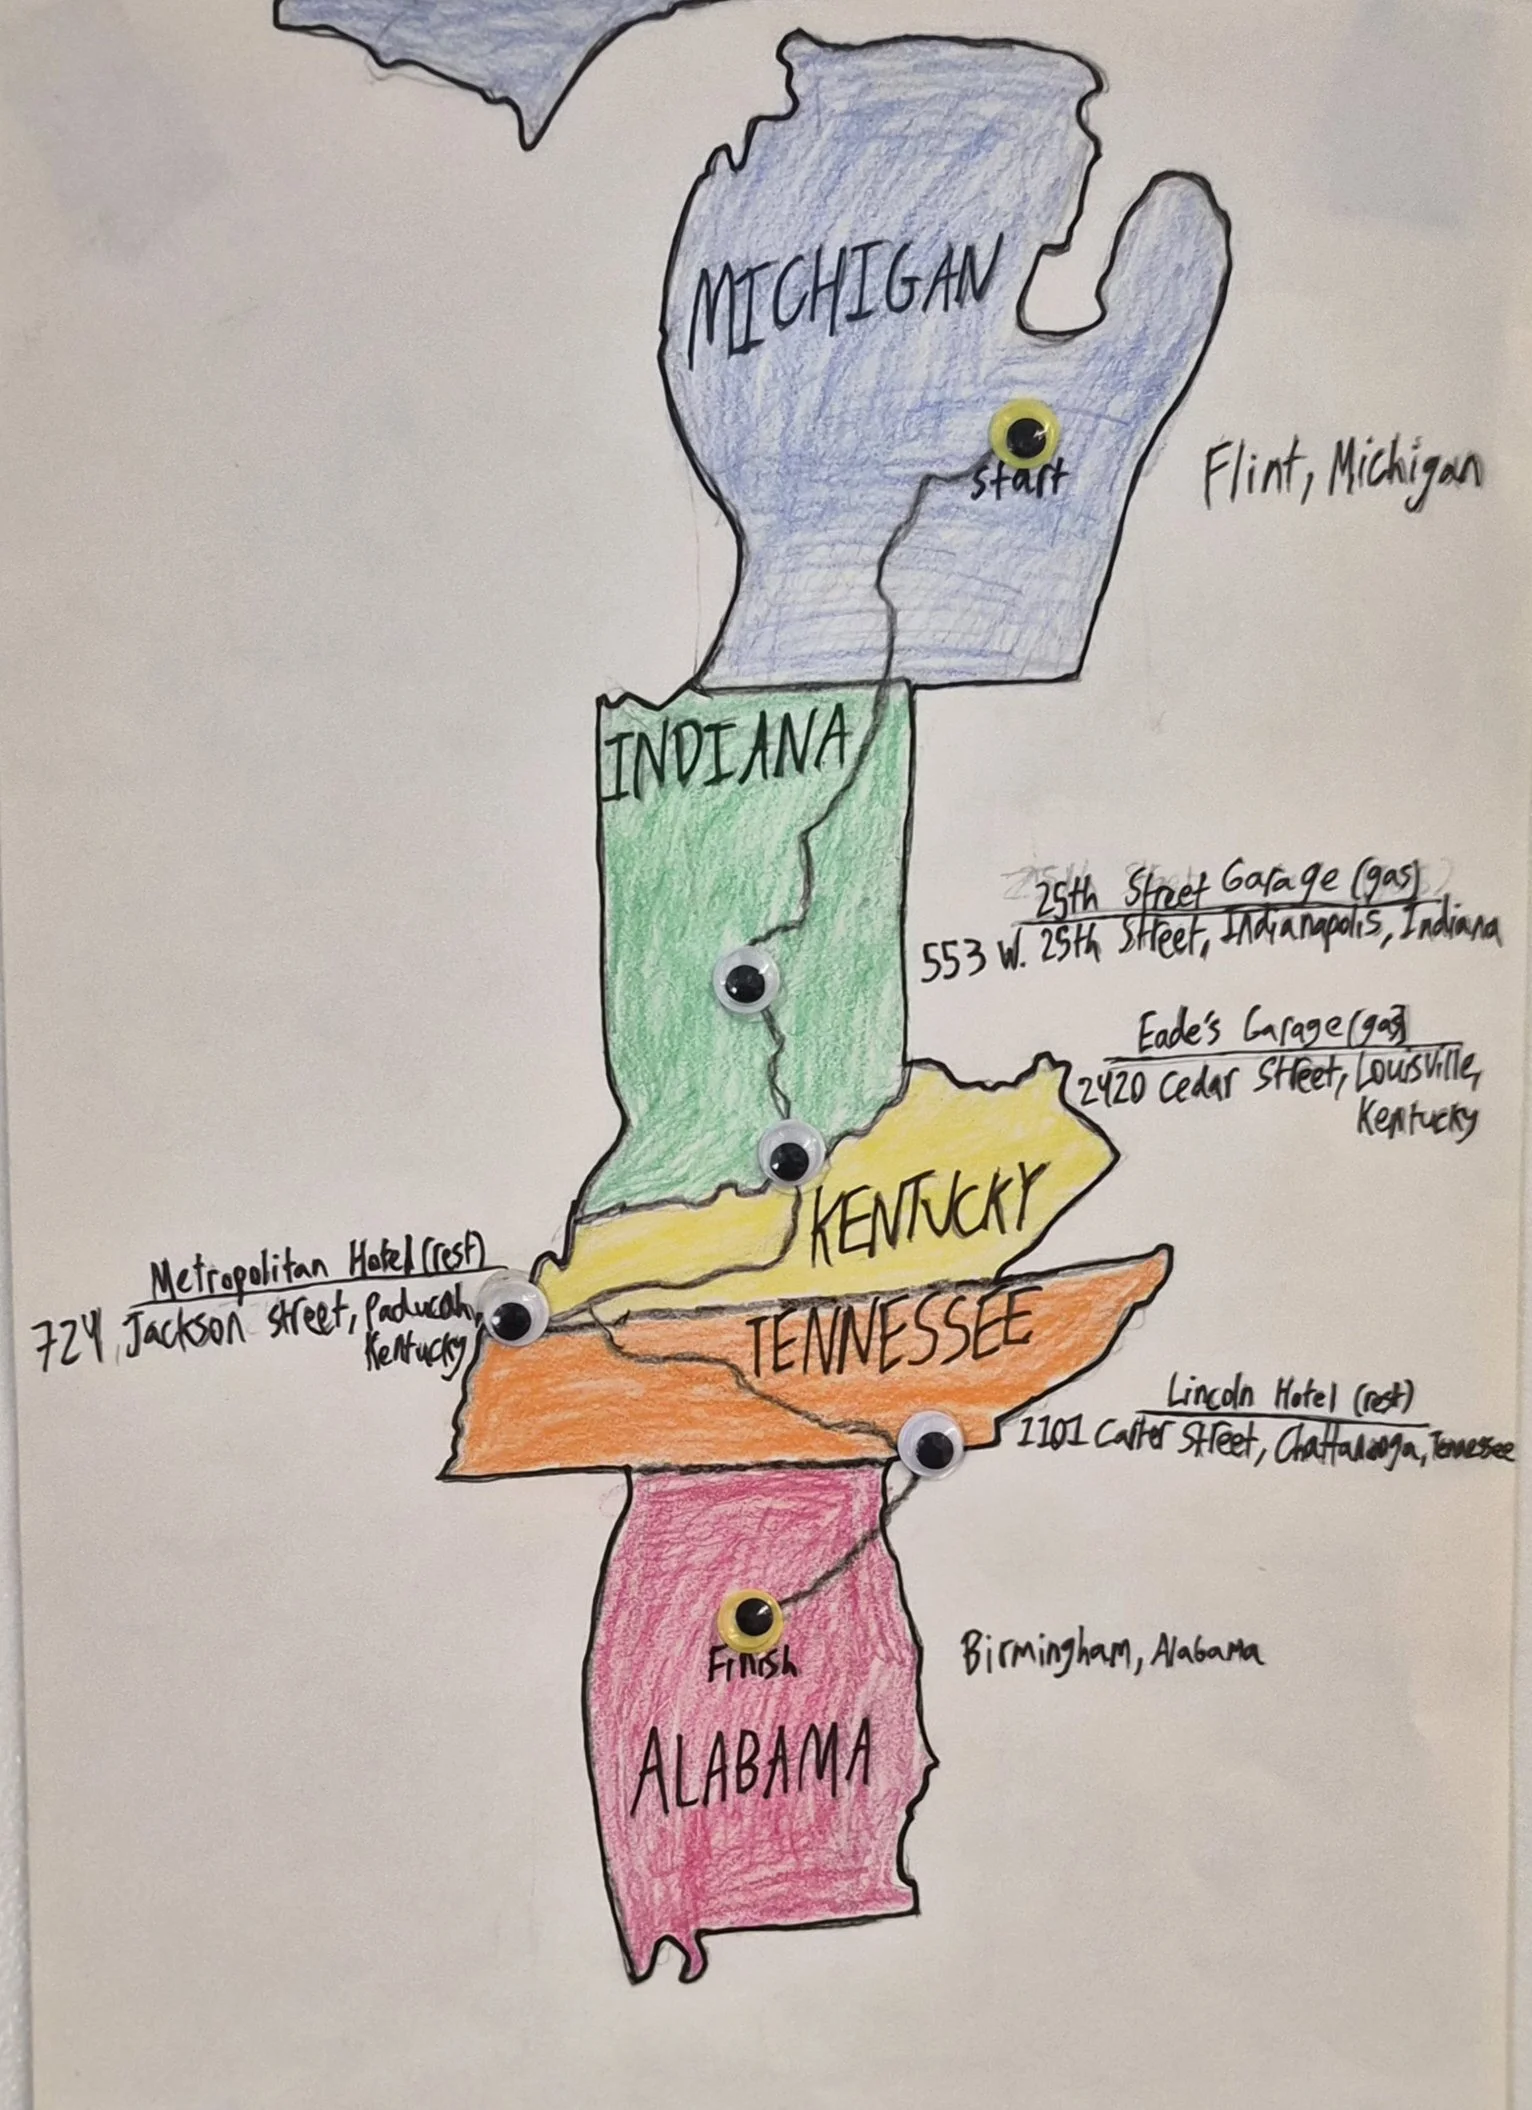 MICHIGAN
Start
Flint, Michigan
INDIANA
25th Street Garage (gas)
553 W. 25th Street, Indianapolis, Indiana
Eade's Garage (gas)
2420 Cedar Street, Louisville,
Kentucky
KENTUCKY
Metropolitan Hotel (rest)
724 Jackson Street, Paducah,
Kentucky
TENNESSEE
Lincoln Hotel (rest)
1101 Carter Street, Chattanooga, Tennessee
Finish
Birmingham, Alabama
ALABAMA